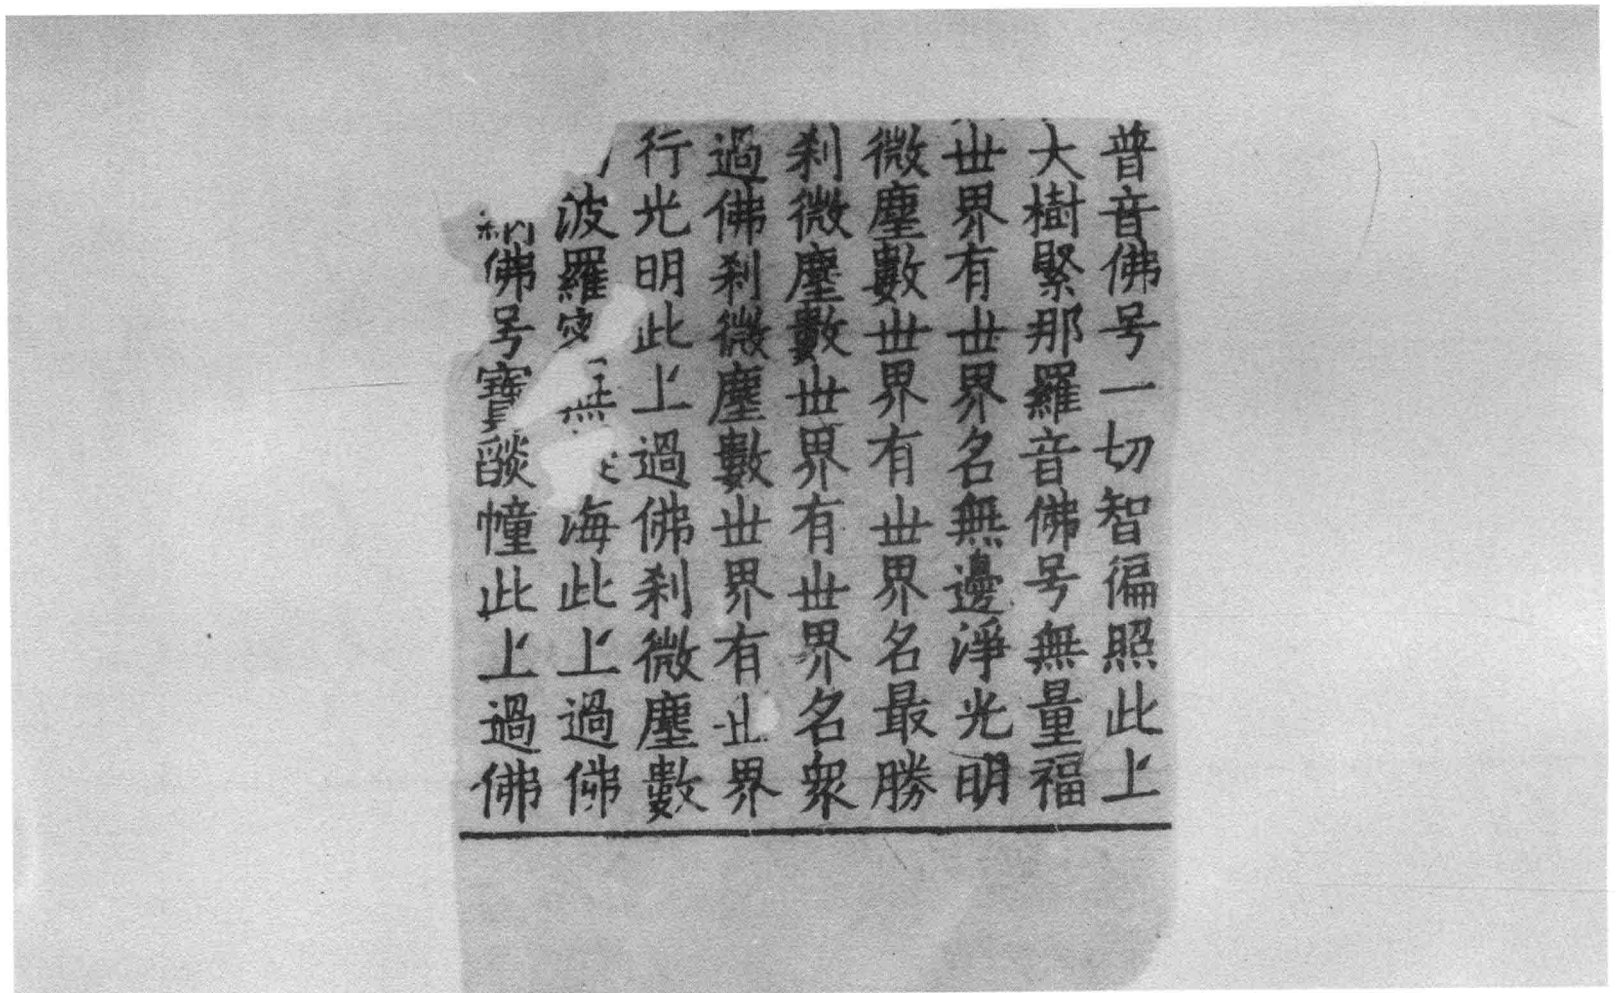 普音佛号一切智徧照此上
大樹緊那羅音佛号無量福
世界有世界名無邊淨光明
微塵數世界有世界名最勝
刹微塵數世界有世界名衆
過佛刹微塵數世界有世界
行光明此上過佛刹微塵數
波羅海此上過佛
網佛号寶燄幢此上過佛